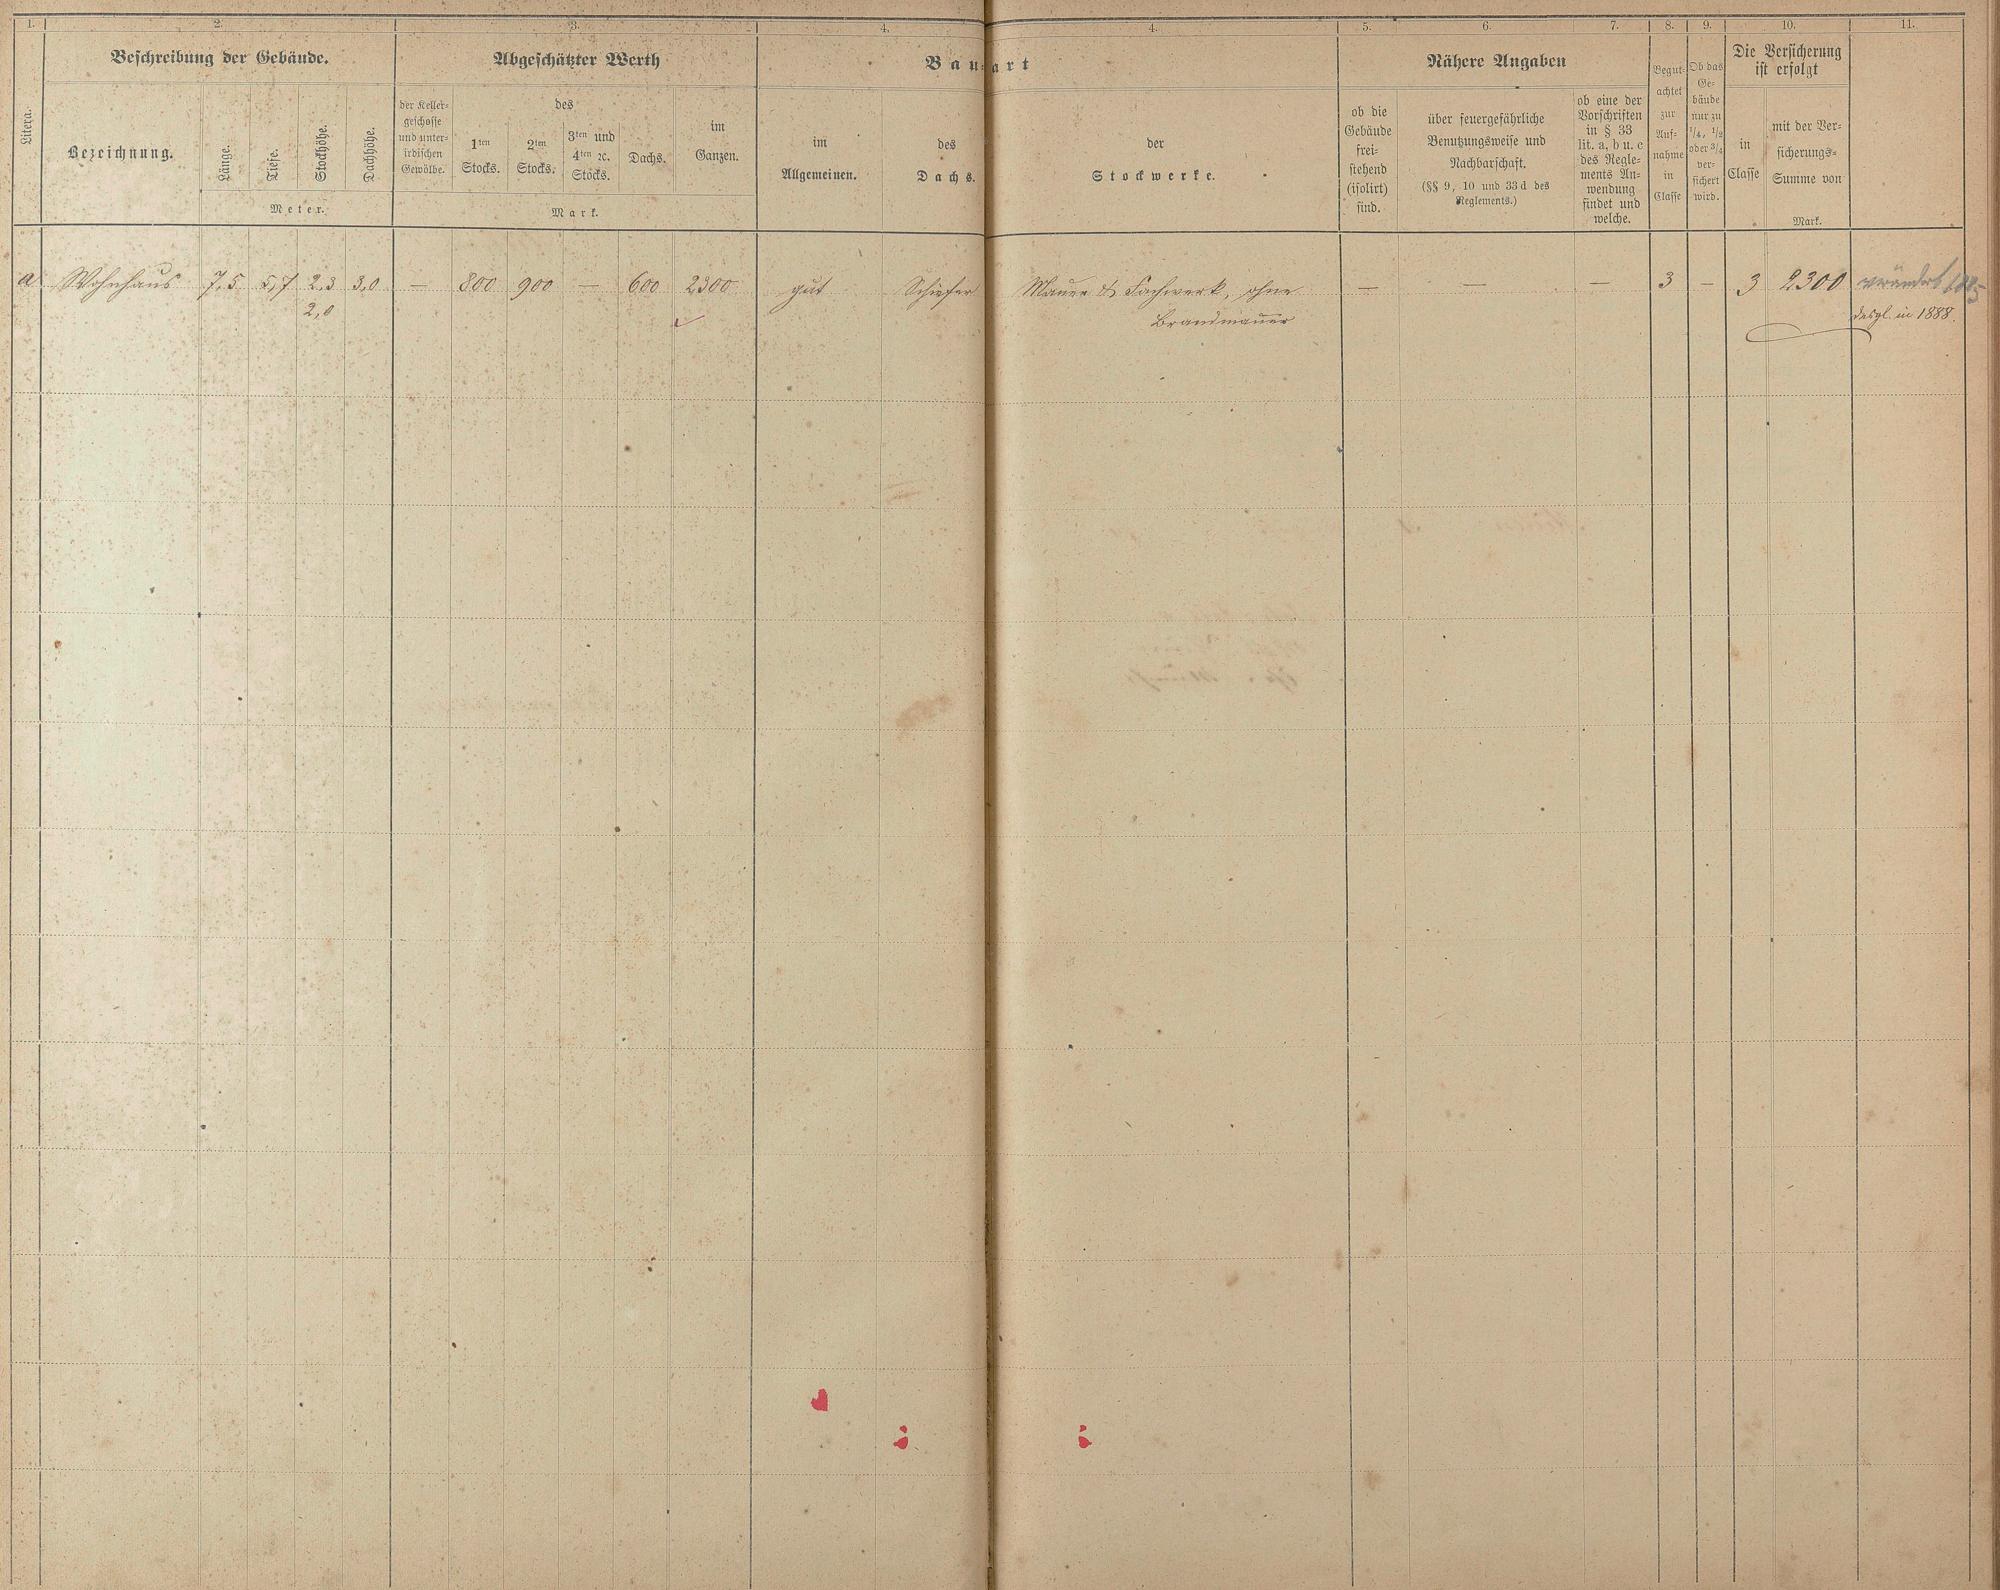 1. 2. 3. 4. 4. 5. 6. 7. 8. 9. 10. 11.
Litera.
Beschreibung der Gebäude.
Bezeichnung.
Länge.
Tiefe.
Stockhöhe.
Dachhöhe.
Meter.
Abgeschätzter Werth
der Keller-
geschosse
und unter-
irdischen
Gewölbe.
des
1ten
Stocks.
2ten
Stocks.
3ten und
4ten ꝛc.
Stocks.
Dachs.
im
Ganzen.
Mark.
Bau-art
im
Allgemeinen.
des
Dachs.
der
Stockwerke.
ob die
Gebäude
frei-
stehend
(isolirt)
sind.
Nähere Angaben
über feuergefährliche
Benutzungsweise und
Nachbarschaft.
(§§ 9, 10 und 33 d des
Reglements.)
ob eine der
Vorschriften
in § 33
lit. a, b u. c
des Regle-
ments An-
wendung
findet und
welche.
Begut-
achtet
zur
Auf-
nahme
in
Classe
Ob das
Ge-
bäude
nur zu
1/4, 1/2
oder 3/4
ver-
sichert
wird.
Die Versicherung
ist erfolgt
in
Classe
mit der Ver-
sicherungs-
Summe von
Mark.
a Wohnhaus 7,5 5,7 2,3 3,0 — 800 900 — 600 2300 gut Schiefer Mauer & Fachwerk, ohne — — — 3 — 3 2300 verändert 1885
2,0 Brandmauer desgl. in 1888.